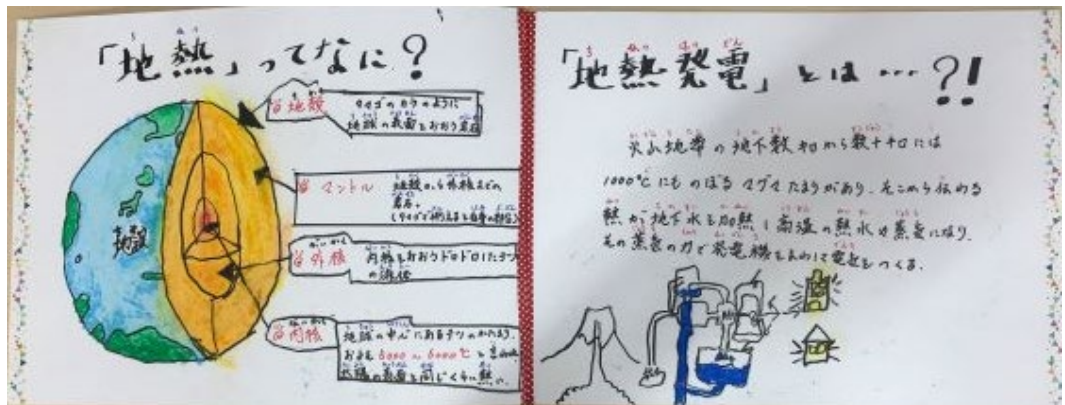 「地熱」ってなに?
地殻
タマゴのカラのように
地球の表面をおおう岩石
マントル
地殻から外核までの
岩石。
地殻
外核
内核をおおうドロドロした
の液体
内核
地球の中心にある かたまり。
5000～6000℃と
太陽の表面と同じくらい熱い。
「地熱発電」とは…?!
火山地帯の地下数キロから数十キロには
1000℃にものぼるマグマたまりがあり、そこから伝わる
熱が地下水を加熱し高温の熱水や蒸気になり、
その蒸気の力で発電機をまわして電気をつくる。